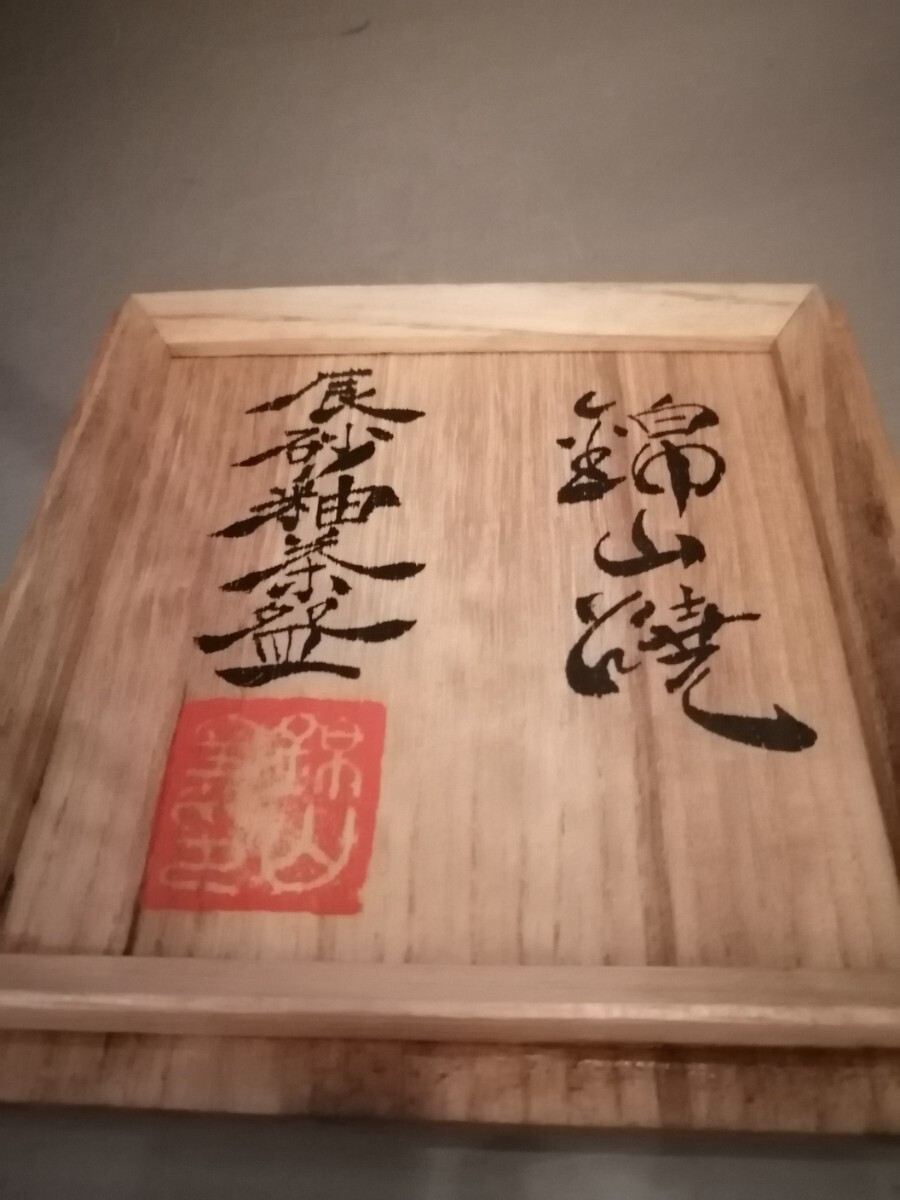 錦山焼
辰砂釉茶盌
錦山